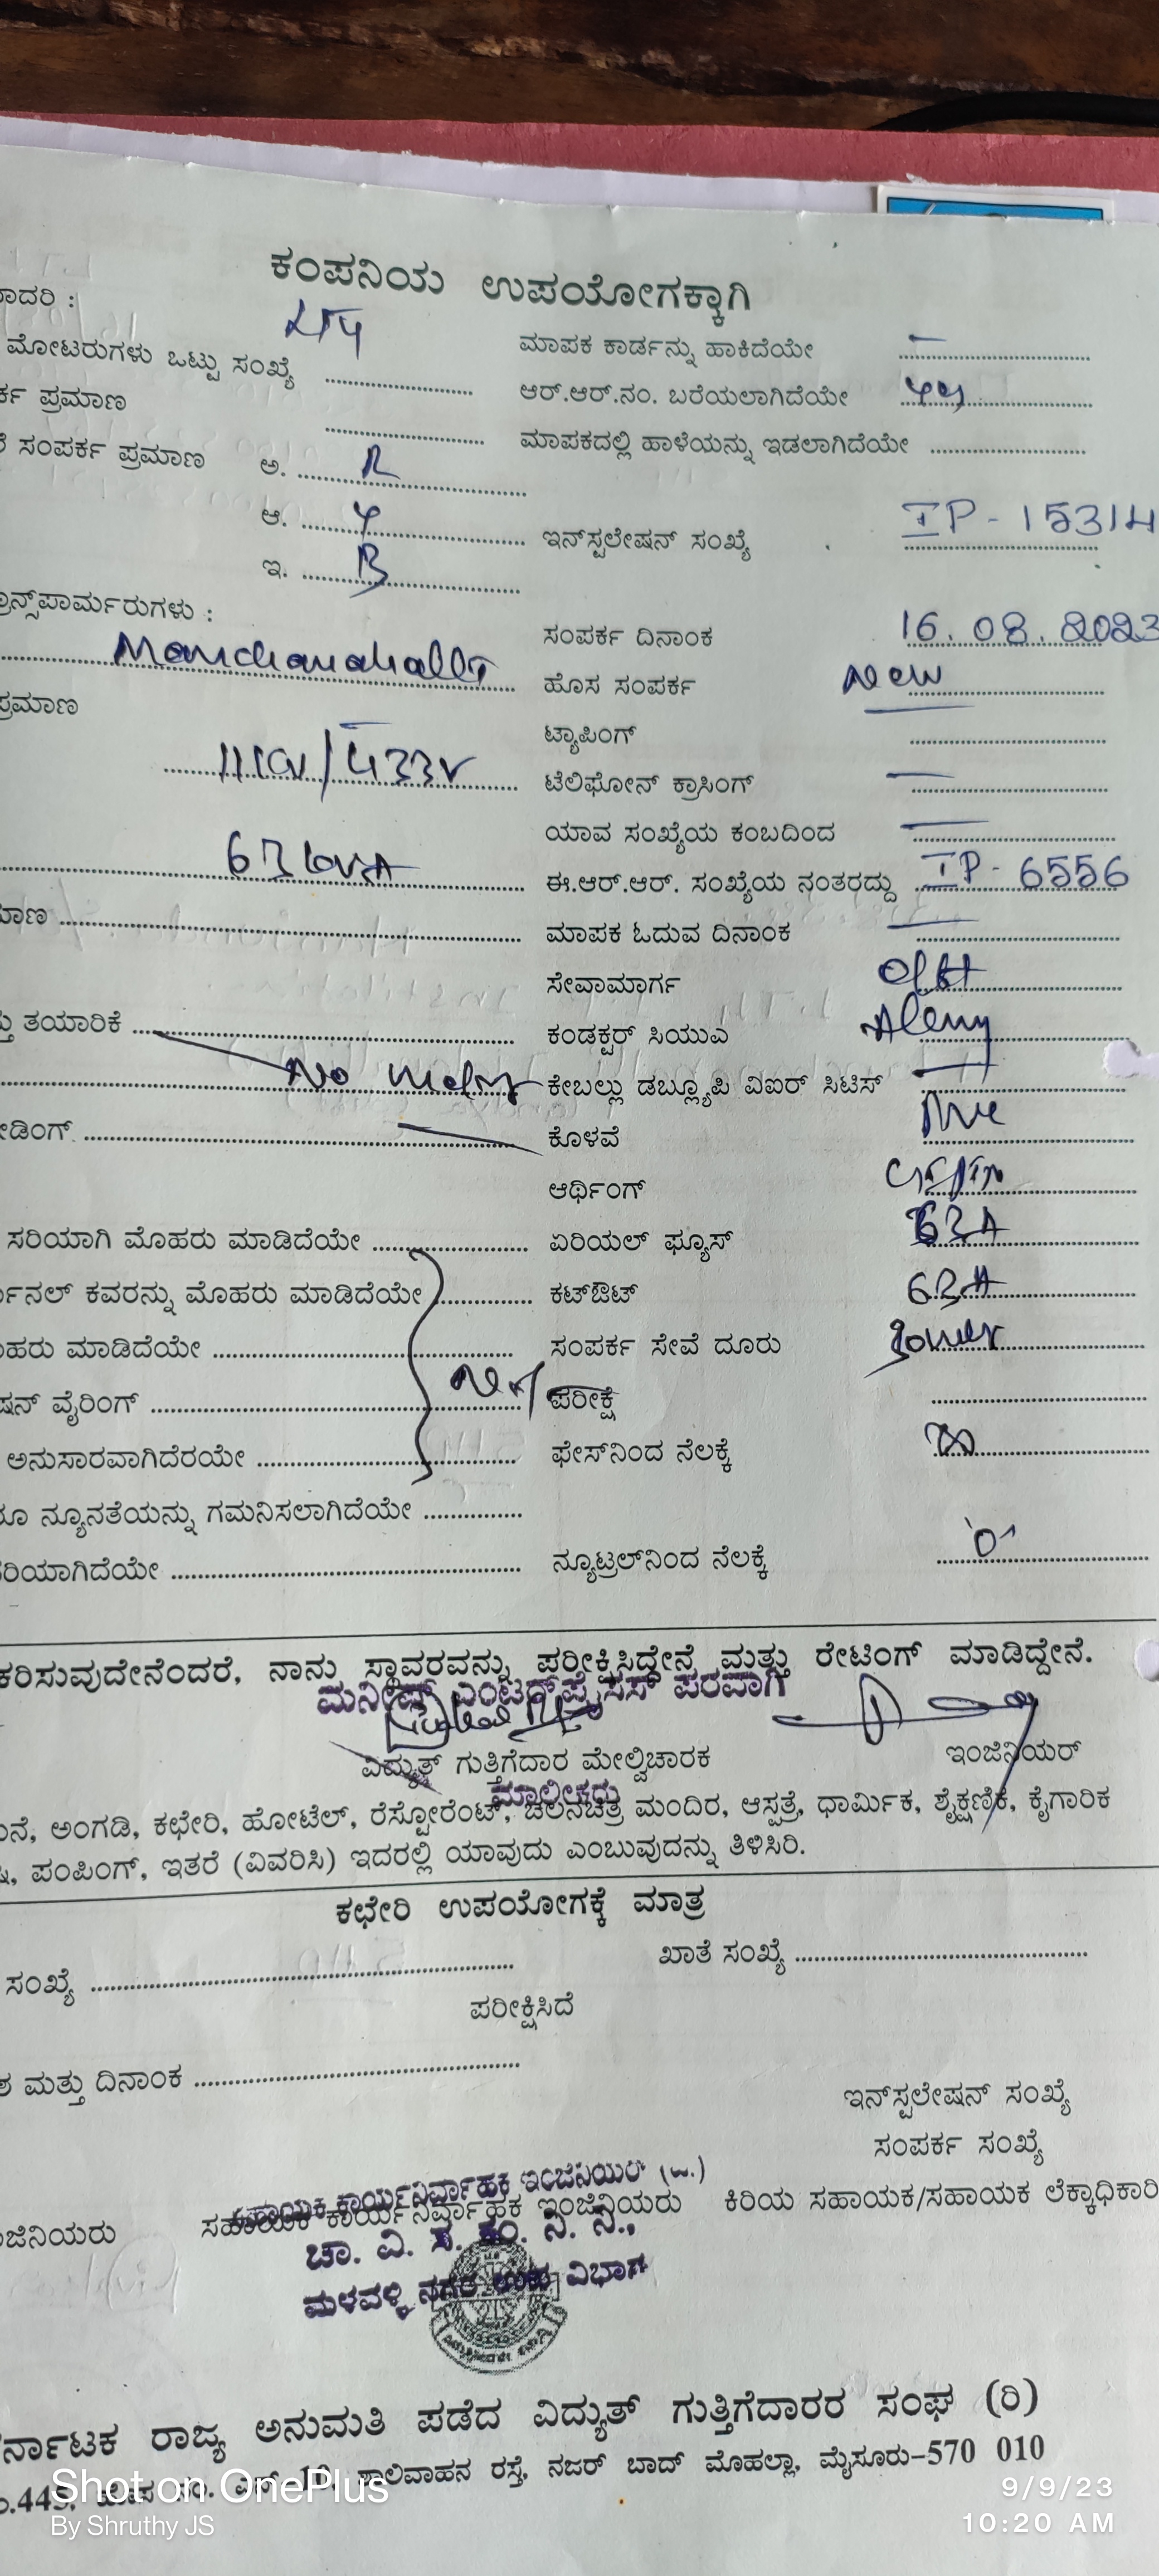 ಕಂಪನಿಯ ಉಪಯೋಗಕ್ಕಾಗಿ
ಾದರಿ :
ಮೋಟರುಗಳು ಒಟ್ಟು ಸಂಖ್ಯೆ ........ ಮಾಪಕ ಕಾರ್ಡನ್ನು ಹಾಕಿದೆಯೇ —
ರ್ಕ ಪ್ರಮಾಣ ........ ಆರ್.ಆರ್.ನಂ. ಬರೆಯಲಾಗಿದೆಯೇ
ಸಂಪರ್ಕ ಪ್ರಮಾಣ ಅ. R ಮಾಪಕದಲ್ಲಿ ಹಾಳೆಯನ್ನು ಇಡಲಾಗಿದೆಯೇ ........
ಆ. Y ಇನ್‌ಸ್ಟಲೇಷನ್ ಸಂಖ್ಯೆ IP - 15314
ಇ. B
ರಾನ್ಸ್‌ಪಾರ್ಮರುಗಳು : ಸಂಪರ್ಕ ದಿನಾಂಕ 16.08.2023
Manchanahalli ಹೊಸ ಸಂಪರ್ಕ New
ಪ್ರಮಾಣ ಟ್ಯಾಪಿಂಗ್ ........
11kv/433v ಟೆಲಿಫೋನ್ ಕ್ರಾಸಿಂಗ್ —
ಯಾವ ಸಂಖ್ಯೆಯ ಕಂಬದಿಂದ —
63 kvA ಈ.ಆರ್.ಆರ್. ಸಂಖ್ಯೆಯ ನಂತರದ್ದು IP - 6556
ಮಾಣ ........ ಮಾಪಕ ಓದುವ ದಿನಾಂಕ —
ಸೇವಾಮಾರ್ಗ
ತು ತಯಾರಿಕೆ ........ ಕಂಡಕ್ಟರ್ ಸಿಯುಎ
No ಕೇಬಲ್ಲು ಡಬ್ಲ್ಯೂಪಿ ವಿಐರ್ ಸಿಟಿಸ್ —
ೀಡಿಂಗ್ ........ ಕೊಳವೆ
ಆರ್ಥಿಂಗ್
ಸರಿಯಾಗಿ ಮೊಹರು ಮಾಡಿದೆಯೇ ........ ಏರಿಯಲ್ ಫ್ಯೂಸ್ 63A
ರ್ಮಿನಲ್ ಕವರನ್ನು ಮೊಹರು ಮಾಡಿದೆಯೇ ........ ಕಟ್‌ಔಟ್ 63A
ೊಹರು ಮಾಡಿದೆಯೇ ........ ಸಂಪರ್ಕ ಸೇವೆ ದೂರು
ಷನ್ ವೈರಿಂಗ್ ........ ಪರೀಕ್ಷೆ ........
ಅನುಸಾರವಾಗಿದೆರಯೇ ........ ಫೇಸ್‌ನಿಂದ ನೆಲಕ್ಕೆ ∞
ೂ ನ್ಯೂನತೆಯನ್ನು ಗಮನಿಸಲಾಗಿದೆಯೇ ........
ರಿಯಾಗಿದೆಯೇ ........ ನ್ಯೂಟ್ರಲ್‌ನಿಂದ ನೆಲಕ್ಕೆ '0'
ಕರಿಸುವುದೇನೆಂದರೆ, ನಾನು ಸ್ಥಾವರವನ್ನು ಪರೀಕ್ಷಿಸಿದ್ದೇನೆ ಮತ್ತು ರೇಟಿಂಗ್ ಮಾಡಿದ್ದೇನೆ.
ಎಂಟರ್‌ಪ್ರೈಸಸ್ ಪರವಾಗಿ
ವಿದ್ಯುತ್ ಗುತ್ತಿಗೆದಾರ ಮೇಲ್ವಿಚಾರಕ ಇಂಜಿನಿಯರ್
ಮಾಲೀಕರು
ನೆ, ಅಂಗಡಿ, ಕಛೇರಿ, ಹೋಟೆಲ್, ರೆಸ್ಟೋರೆಂಟ್, ಚಲನಚಿತ್ರ ಮಂದಿರ, ಆಸ್ಪತ್ರೆ, ಧಾರ್ಮಿಕ, ಶೈಕ್ಷಣಿಕ, ಕೈಗಾರಿಕ
ಷಿ, ಪಂಪಿಂಗ್, ಇತರೆ (ವಿವರಿಸಿ) ಇದರಲ್ಲಿ ಯಾವುದು ಎಂಬುವುದನ್ನು ತಿಳಿಸಿರಿ.
ಕಛೇರಿ ಉಪಯೋಗಕ್ಕೆ ಮಾತ್ರ
ಸಂಖ್ಯೆ ........ ಖಾತೆ ಸಂಖ್ಯೆ ........
ಪರೀಕ್ಷಿಸಿದೆ
ಶ ಮತ್ತು ದಿನಾಂಕ ........
ಇನ್‌ಸ್ಟಲೇಷನ್ ಸಂಖ್ಯೆ
ಸಂಪರ್ಕ ಸಂಖ್ಯೆ
ಸಹಾಯಕ ಕಾರ್ಯನಿರ್ವಾಹಕ ಇಂಜಿನಿಯರ್ (ವಿ.)
ಂಜಿನಿಯರು ಸಹಾಯಕ ಕಾರ್ಯನಿರ್ವಾಹಕ ಇಂಜಿನಿಯರು ಕಿರಿಯ ಸಹಾಯಕ/ಸಹಾಯಕ ಲೆಕ್ಕಾಧಿಕಾರಿ
ಚಾ. ವಿ. ಸ. ಕಂ. ನಿ. ನಿ.,
ಮಳವಳ್ಳಿ ನಗರ ಉಪ ವಿಭಾಗ
ರ್ನಾಟಕ ರಾಜ್ಯ ಅನುಮತಿ ಪಡೆದ ವಿದ್ಯುತ್ ಗುತ್ತಿಗೆದಾರರ ಸಂಘ (ರಿ)
.445, ಶಾಲಿವಾಹನ ರಸ್ತೆ, ನಜರ್ ಬಾದ್ ಮೊಹಲ್ಲಾ, ಮೈಸೂರು-570 010
Shot on OnePlus
By Shruthy JS
9/9/23
10:20 AM